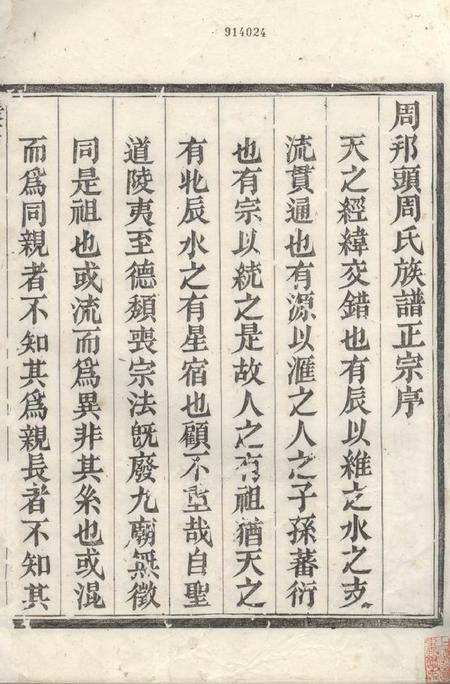 914024
周邦頭周氏族譜正宗序
天之經緯交錯也有辰以維之水之支
流貫通也有源以滙之人之子孫蕃衍
也有宗以統之是故人之有祖猶天之
有北辰水之有星宿也顧不重哉自聖
道陵夷至德頹喪宗法旣廢九廟無徵
同是祖也或流而爲異非其糸也或混
而爲同親者不知其爲親長者不知其